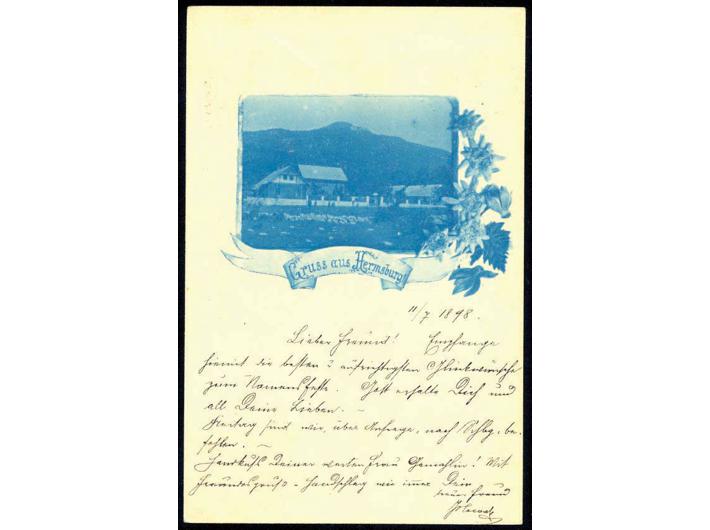 Gruss aus Hermsburg
11/7 1898.
Lieber Freund! Empfange
hiemit die besten & aufrichtigsten Glückwünsche
zum Namensfeste. Gott erhalte Dich und
all Deine Lieben. –
Freitag sind wir, über Anfrage, nach Schbg. be-
fohlen. –
Handkuß Deiner werten Frau Gemahlin! Mit
Freundesgruß & Handschlag wie immer Dein
treuer Freund